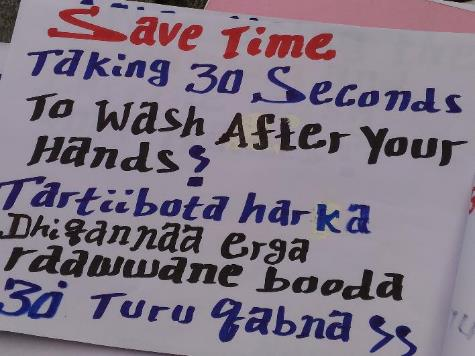 Save Time
Taking 30 Seconds
To Wash After Your
Hands?
Tartiibota harka
Dhiqannaa erga
raawwane booda
30 Turu qabna ss